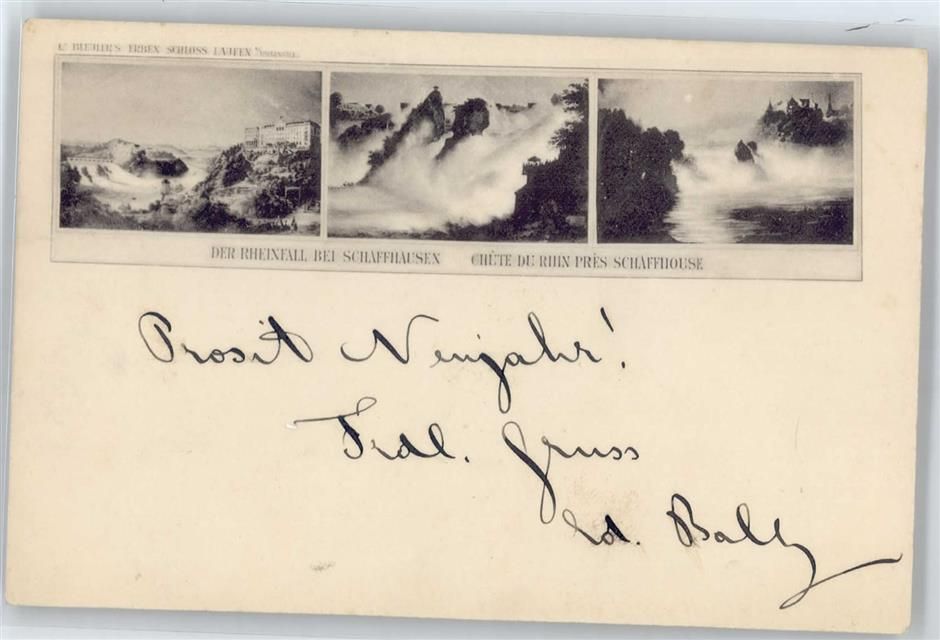 Ls BLEULER'S ERBEN SCHLOSS LAUFEN A/RHEINFALL
DER RHEINFALL BEI SCHAFFHAUSEN CHÛTE DU RHIN PRÈS SCHAFFHOUSE
Prosit Neujahr!
Frdl. Gruss
Ed. Bally